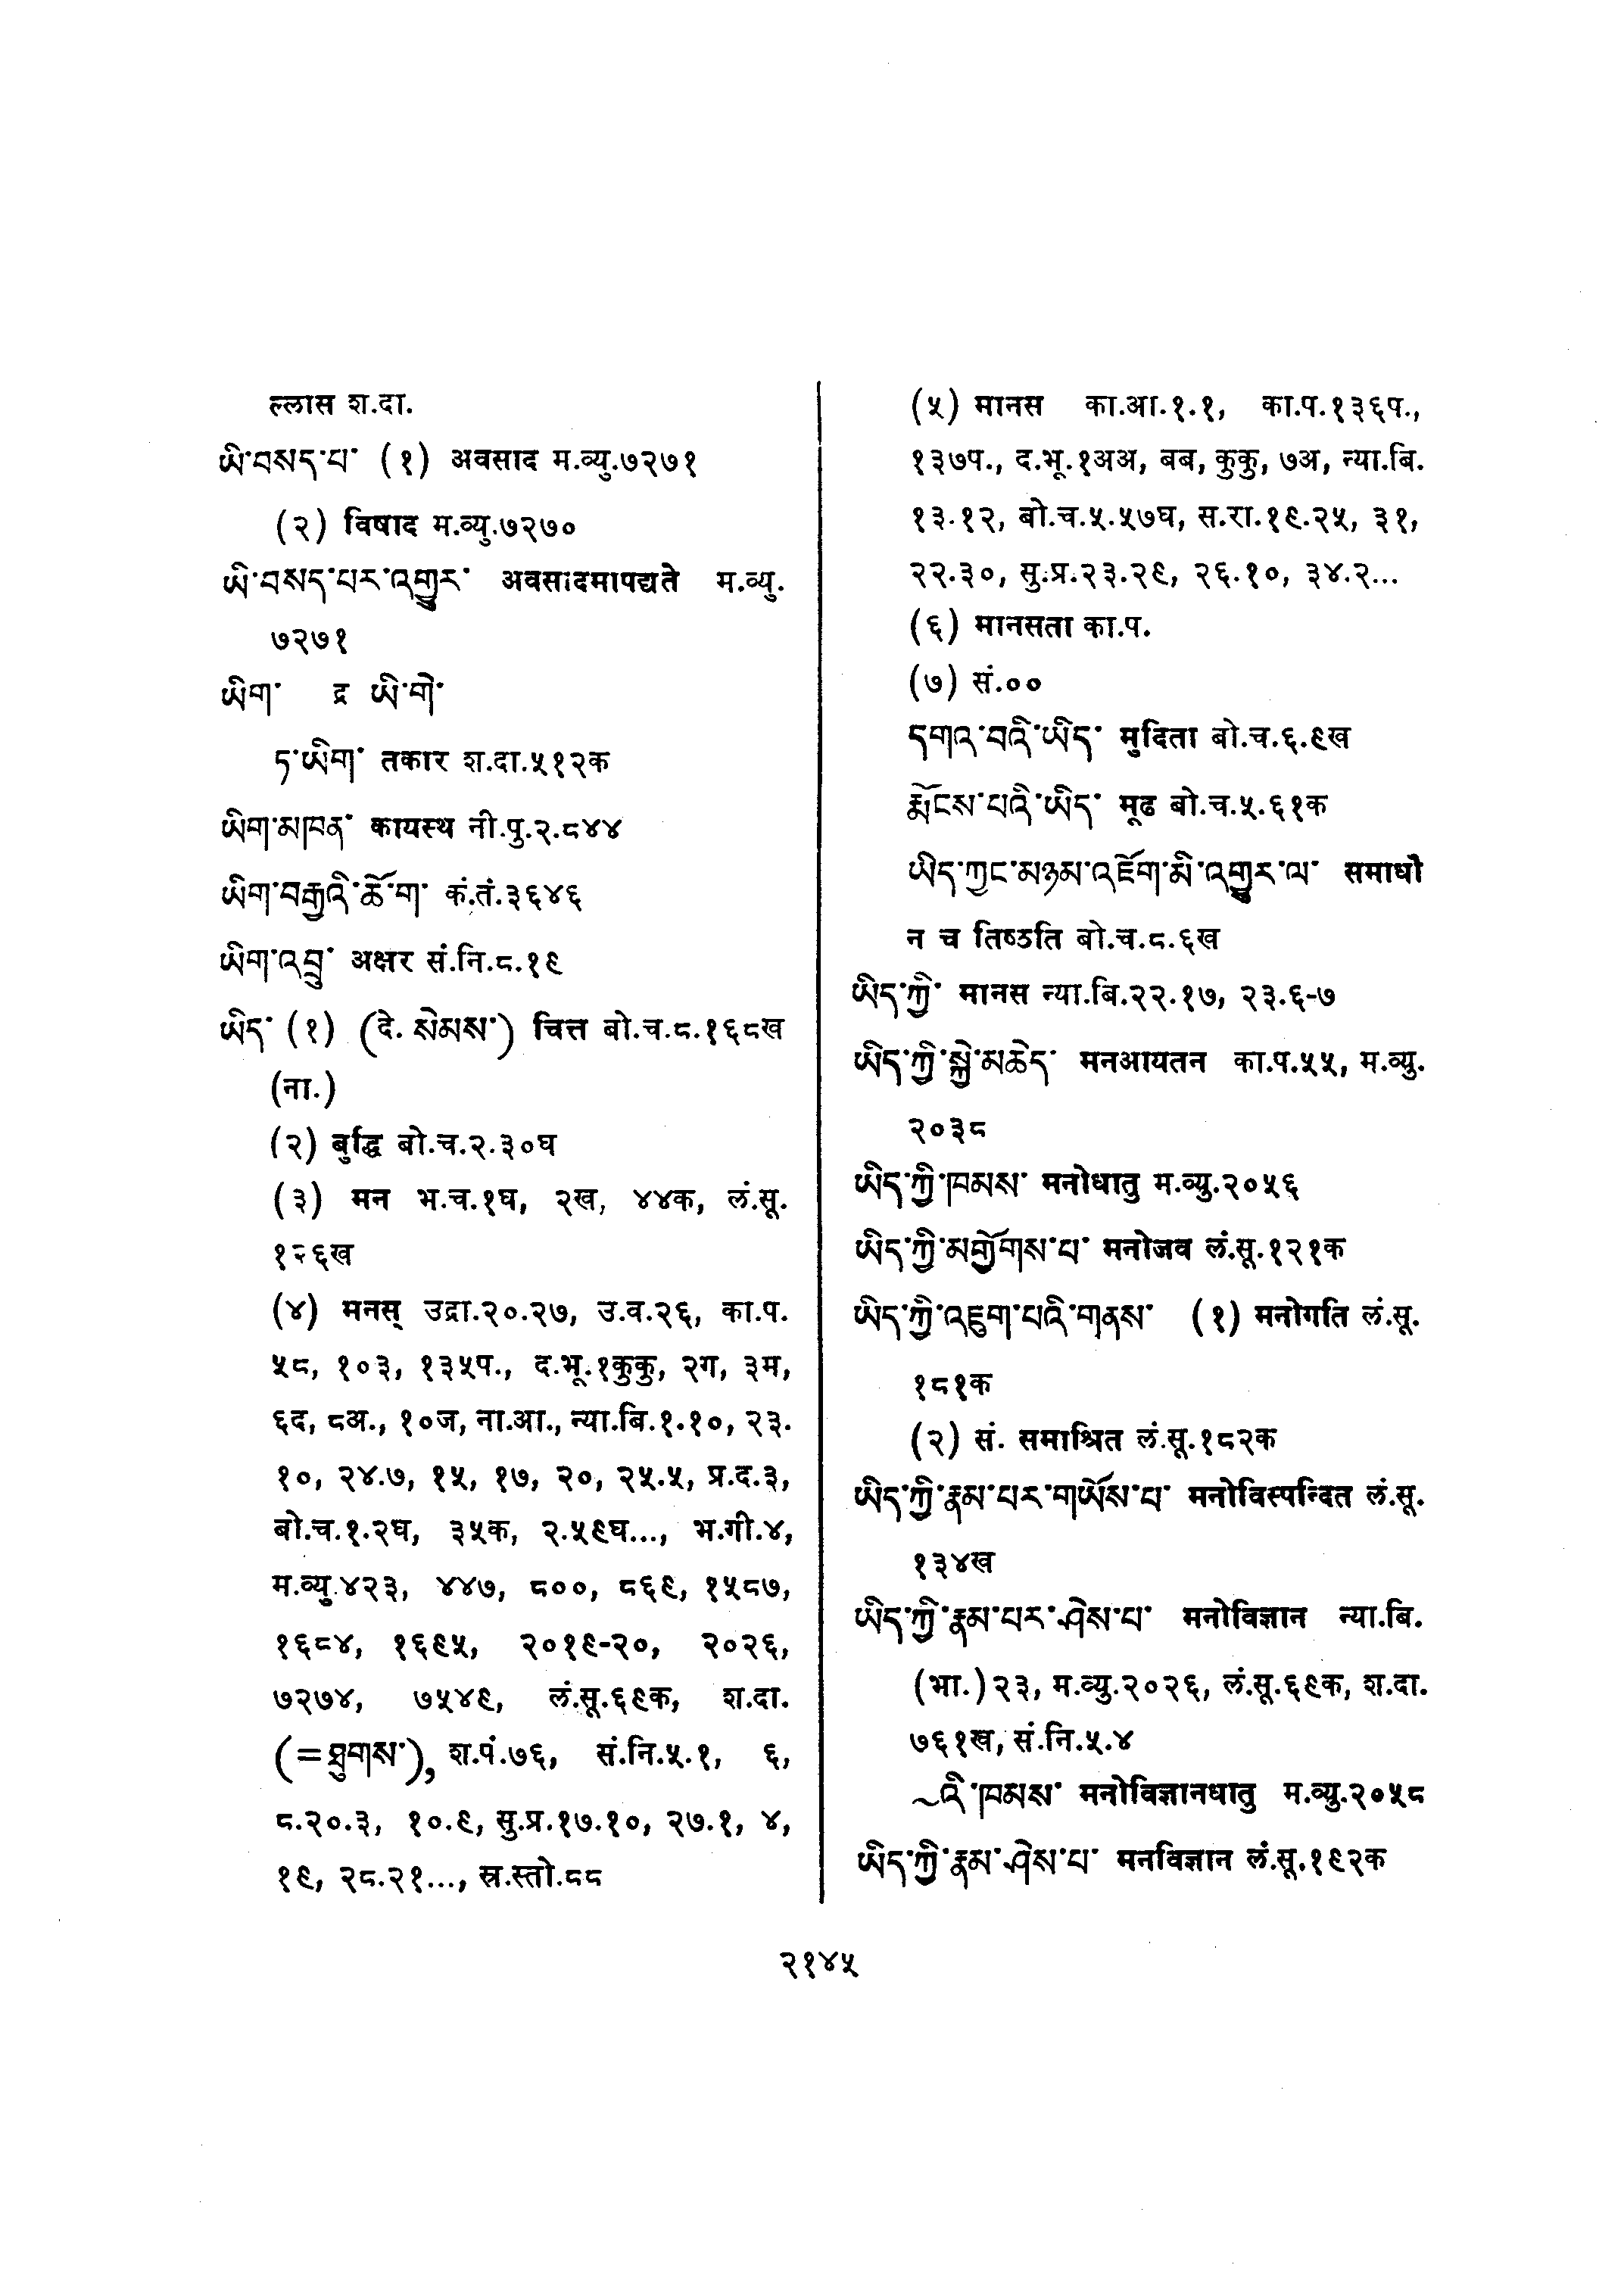 ल्लास श.दा.
ཡི་བསད་པ་ (१) अवसाद म.व्यु.७२७१
(२) विषाद म.व्यु.७२७०
ཡི་བསད་པར་འགྱུར་ अवसादमापद्यते म.व्यु.
७२७१
ཡིག་ द्र ཡི་གེ་
ཏ་ཡིག་ तकार श.दा.५१२क
ཡིག་མཁན་ कायस्थ नी.पु.२.८४४
ཡིག་བརྒྱའི་ཆོ་ག་ कं.तं.३६४६
ཡིག་འབྲུ་ अक्षर सं.नि.८.१९
ཡིད་ (१) (दे. སེམས་) चित्त बो.च.८.१६८ख
(ना.)
(२) बुद्धि बो.च.२.३०घ
(३) मन भ.च.१घ, २ख, ४४क, लं.सू.
१२६ख
(४) मनस् उद्रा.२०.२७, उ.व.२६, का.प.
५८, १०३, १३५प., द.भू.१कुकु, २ग, ३म,
६द, ८अ., १०ज, ना.आ., न्या.बि.१.१०, २३.
१०, २४.७, १५, १७, २०, २५.५, प्र.द.३,
बो.च.१.२घ, ३५क, २.५९घ..., भ.गी.४,
म.व्यु.४२३, ४४७, ८००, ८६९, १५८७,
१६८४, १६९५, २०१९-२०, २०२६,
७२७४, ७५४९, लं.सू.६९क, श.दा.
(=ཐུགས་), श.पं.७६, सं.नि.५.१, ६,
८.२०.३, १०.९, सु.प्र.१७.१०, २७.१, ४,
१९, २८.२१..., स्र.स्तो.८८
(५) मानस का.आ.१.१, का.प.१३६प.,
१३७प., द.भू.१अअ, बब, कुकु, ७अ, न्या.बि.
१३.१२, बो.च.५.५७घ, स.रा.१९.२५, ३१,
२२.३०, सु.प्र.२३.२९, २६.१०, ३४.२...
(६) मानसता का.प.
(७) सं.००
དགའ་བའི་ཡིད་ मुदिता बो.च.६.९ख
རྨོངས་པའི་ཡིད་ मूढ बो.च.५.६१क
ཡིད་ཀྱང་མཉམ་འཇོག་མི་འགྱུར་ལ་ समाधौ
न च तिष्ठति बो.च.८.६ख
ཡིད་ཀྱི་ मानस न्या.बि.२२.१७, २३.६-७
ཡིད་ཀྱི་སྐྱེ་མཆེད་ मनआयतन का.प.५५, म.व्यु.
२०३८
ཡིད་ཀྱི་ཁམས་ मनोधातु म.व्यु.२०५६
ཡིད་ཀྱི་མགྱོགས་པ་ मनोजव लं.सू.१२१क
ཡིད་ཀྱི་འཇུག་པའི་གནས་ (१) मनोगति लं.सू.
१८१क
(२) सं. समाश्रित लं.सू.१८२क
ཡིད་ཀྱི་རྣམ་པར་གཡོས་པ་ मनोविस्पन्दित लं.सू.
१३४ख
ཡིད་ཀྱི་རྣམ་པར་ཤེས་པ་ मनोविज्ञान न्या.बि.
(भा.)२३, म.व्यु.२०२६, लं.सू.६९क, श.दा.
७६१ख, सं.नि.५.४
~འི་ཁམས་ मनोविज्ञानधातु म.व्यु.२०५८
ཡིད་ཀྱི་རྣམ་ཤེས་པ་ मनविज्ञान लं.सू.१९२क
२१४५